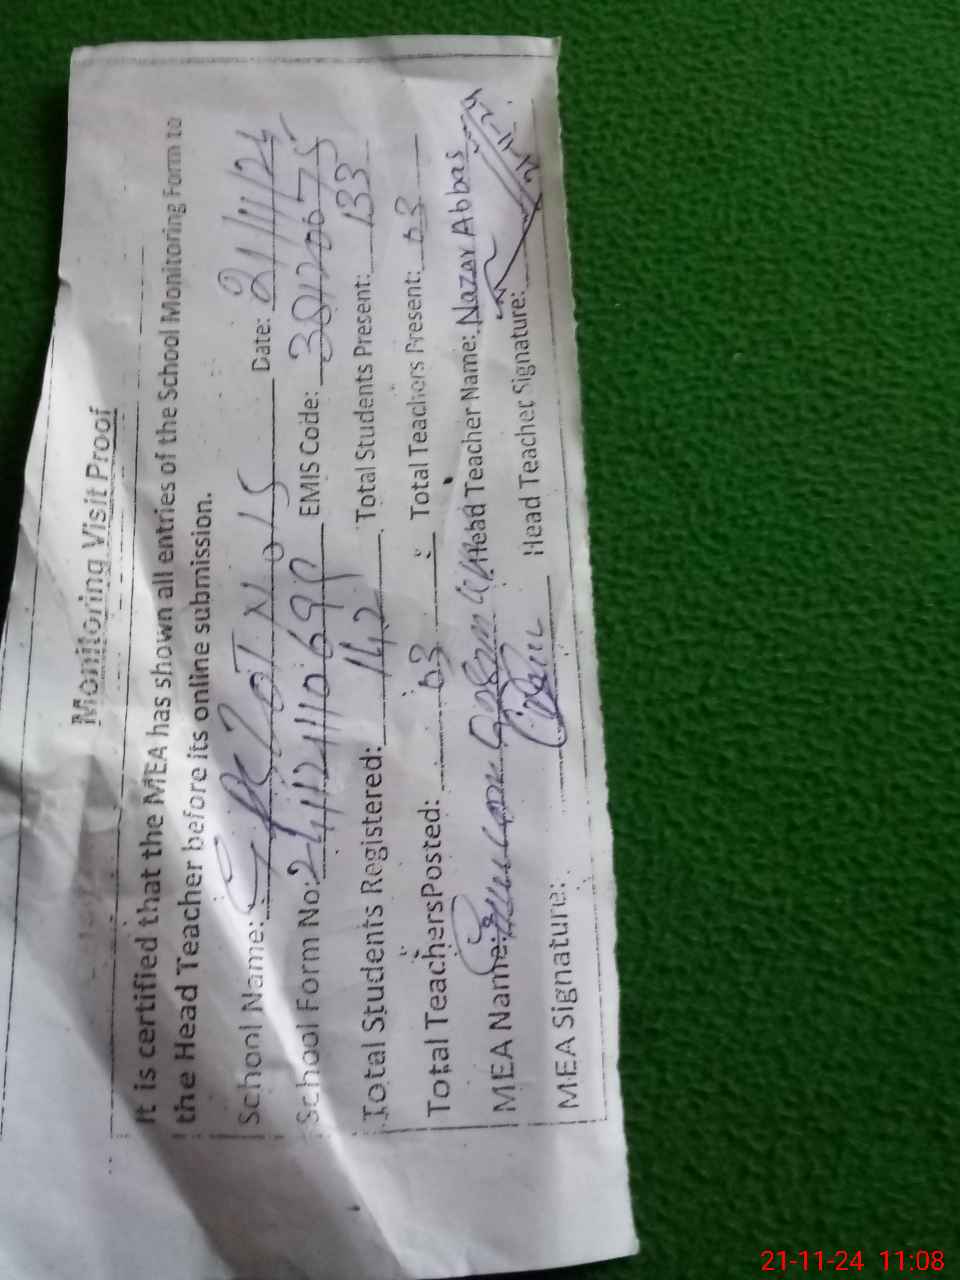 Monitoring Visit Proof
It is certified that the MEA has shown all entries of the School Monitoring Form to
the Head Teacher before its online submission.
School Name: Date: 21/11/24
School Form No: EMIS Code:
Total Students Registered: 142 Total Students Present: 133
Total Teachers Posted: 03 Total Teachers Present: 03
MEA Name: Head Teacher Name: Nazar Abbas
MEA Signature: Head Teacher Signature: 21-11-24
21-11-24 11:08